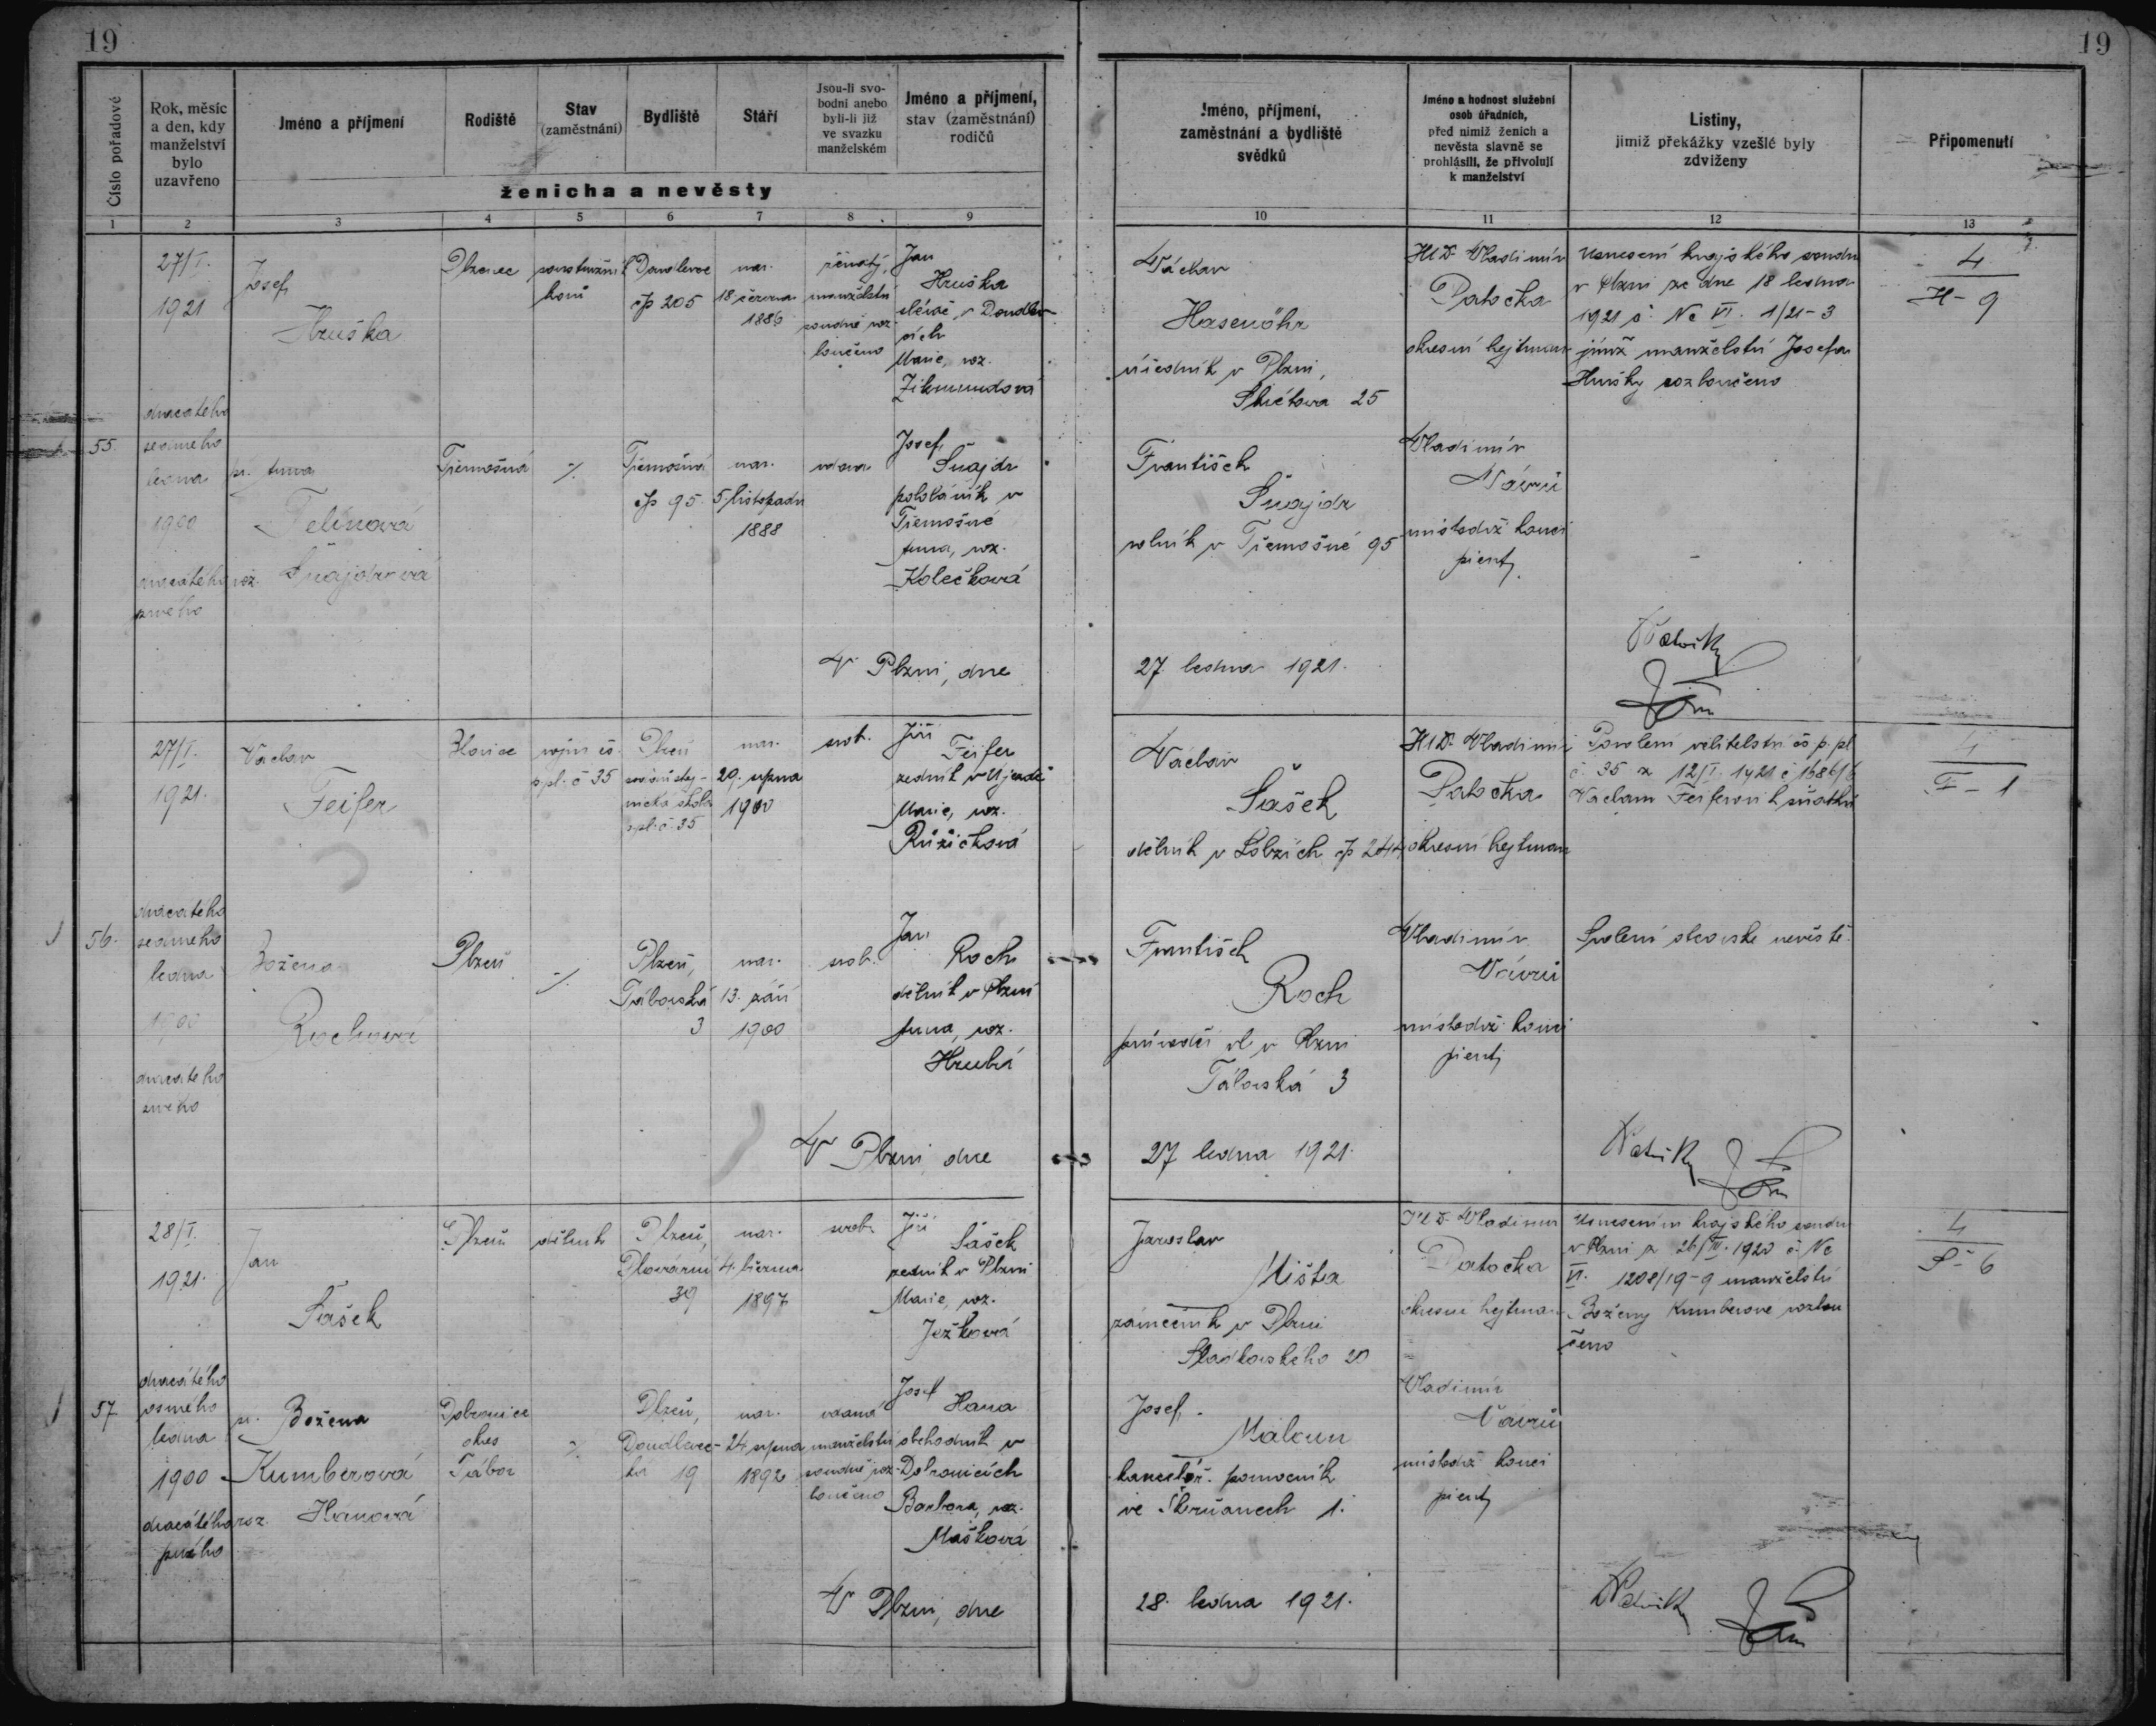 19
19
Číslo pořadové
Rok, měsíc
a den, kdy
manželství
bylo
uzavřeno
Jméno a příjmení
Rodiště
Stav
(zaměstnání)
Bydliště
Stáří
Jsou-li svo-
bodni anebo
byli-li již
ve svazku
manželském
Jméno a příjmení,
stav (zaměstnání)
rodičů
ženicha a nevěsty
Jméno, příjmení,
zaměstnání a bydliště
svědků
Jméno a hodnost služební
osob úřadních,
před nimiž ženich a
nevěsta slavně se
prohlásili, že přivolují
k manželství
Listiny,
jimiž překážky vzešlé byly
zdviženy
Připomenutí
1 2 3 4 5 6 7 8 9
10 11 12 13
27/I.
1921
dvacátého
sedmého
ledna
1900
dvacátého
prvého
55.
Josef
Hruška
Plzenec
Doudlevce
čp 205
nar.
18 června
1886
ženatý,
manželství
soudně roz-
loučeno
Jan
Hruška
slévač v Doudlev-
cích
Marie, roz.
Zikmundová
pí. Anna
Felinová
roz. Šnajdrová
Třemošná
%
Třemošná
čp 95
nar.
5. listopadu
1888
vdova
Josef
Šnajdr
v
Třemošné
Anna, roz.
Kolečková
V Plzni, dne
Václav
Hasenöhr
úředník v Plzni,
25
František
Šnajdr
rolník v Třemošné 95
27. ledna 1921.
JUDr Vladimír
Patočka
okresní hejtman
Vladimír
Vávrů
místodrž. konci
pient
Usnesení krajského soudu
v Plzni ze dne 18 ledna
1921 č. Nc VI. 1/21-3
jímž manželství Josefa
Hrušky rozloučeno
4
H - 9
27/I.
1921.
dvacátého
sedmého
ledna
1900
dvacátého
prvého
56.
Václav
Feifer
Blovice
vojín čs.
p. pl. č 35
Plzeň
nar.
29. srpna
1900
svob.
Jiří
Feifer
zedník v Újezdě
Marie, roz.
Růžičková
Božena
Rochová
Plzeň
%
Plzeň,
Táborská
3
nar.
13. září
1900
svob.
Jan
Roch
dělník v Plzni
Anna, roz.
Hrubá
V Plzni dne
Václav
Šašek
dělník v Lobzích čp 244
František
Roch
průvodčí vl. v Plzni
Táborská 3
27 ledna 1921.
JUDr. Vladimír
Patočka
okresní hejtman
Vladimír
Vávrů
místodrž. konci
pient
Povolení velitelství čs p. pl
č. 35 z 12/I. 1921
Václavu Feiferovi k sňatku
Svolení otcovské nevěstě.
4
F - 1
28/I.
1921.
dvacátého
osmého
ledna
1900
dvacátého
prvého
57
Jan
Šašek
Plzeň
dělník
Plzeň,
39
nar.
4. března
1897
svob.
Jiří
Šašek
zedník v Plzni
Marie, roz.
Ježková
pí. Božena
Kumberová
roz. Hanová
Dobronice
okres
Tábor
%
Plzeň,
Doudlevec-
ká 19
nar.
24 srpna
1892
vdaná
manželství
soudně roz-
loučeno
Josef
Hana
obchodník v
Dobronicích
Barbora, roz.
Mašková
V Plzni, dne
Jaroslav
Mišta
zámečník v Plzni
Sladkovského 20
Josef
Makun
kancelář. pomocník
ve Škvrňanech 1.
28. ledna 1921.
JUDr Vladimír
Patočka
okresní hejtman
Vladimír
Vávrů
místodrž konci
pient
Usnesením krajského soudu
v Plzni z 26/III. 1920 č. Nc
VI. 1208/19-9 manželství
Boženy Kumberové rozlou
čeno
4
Š - 6